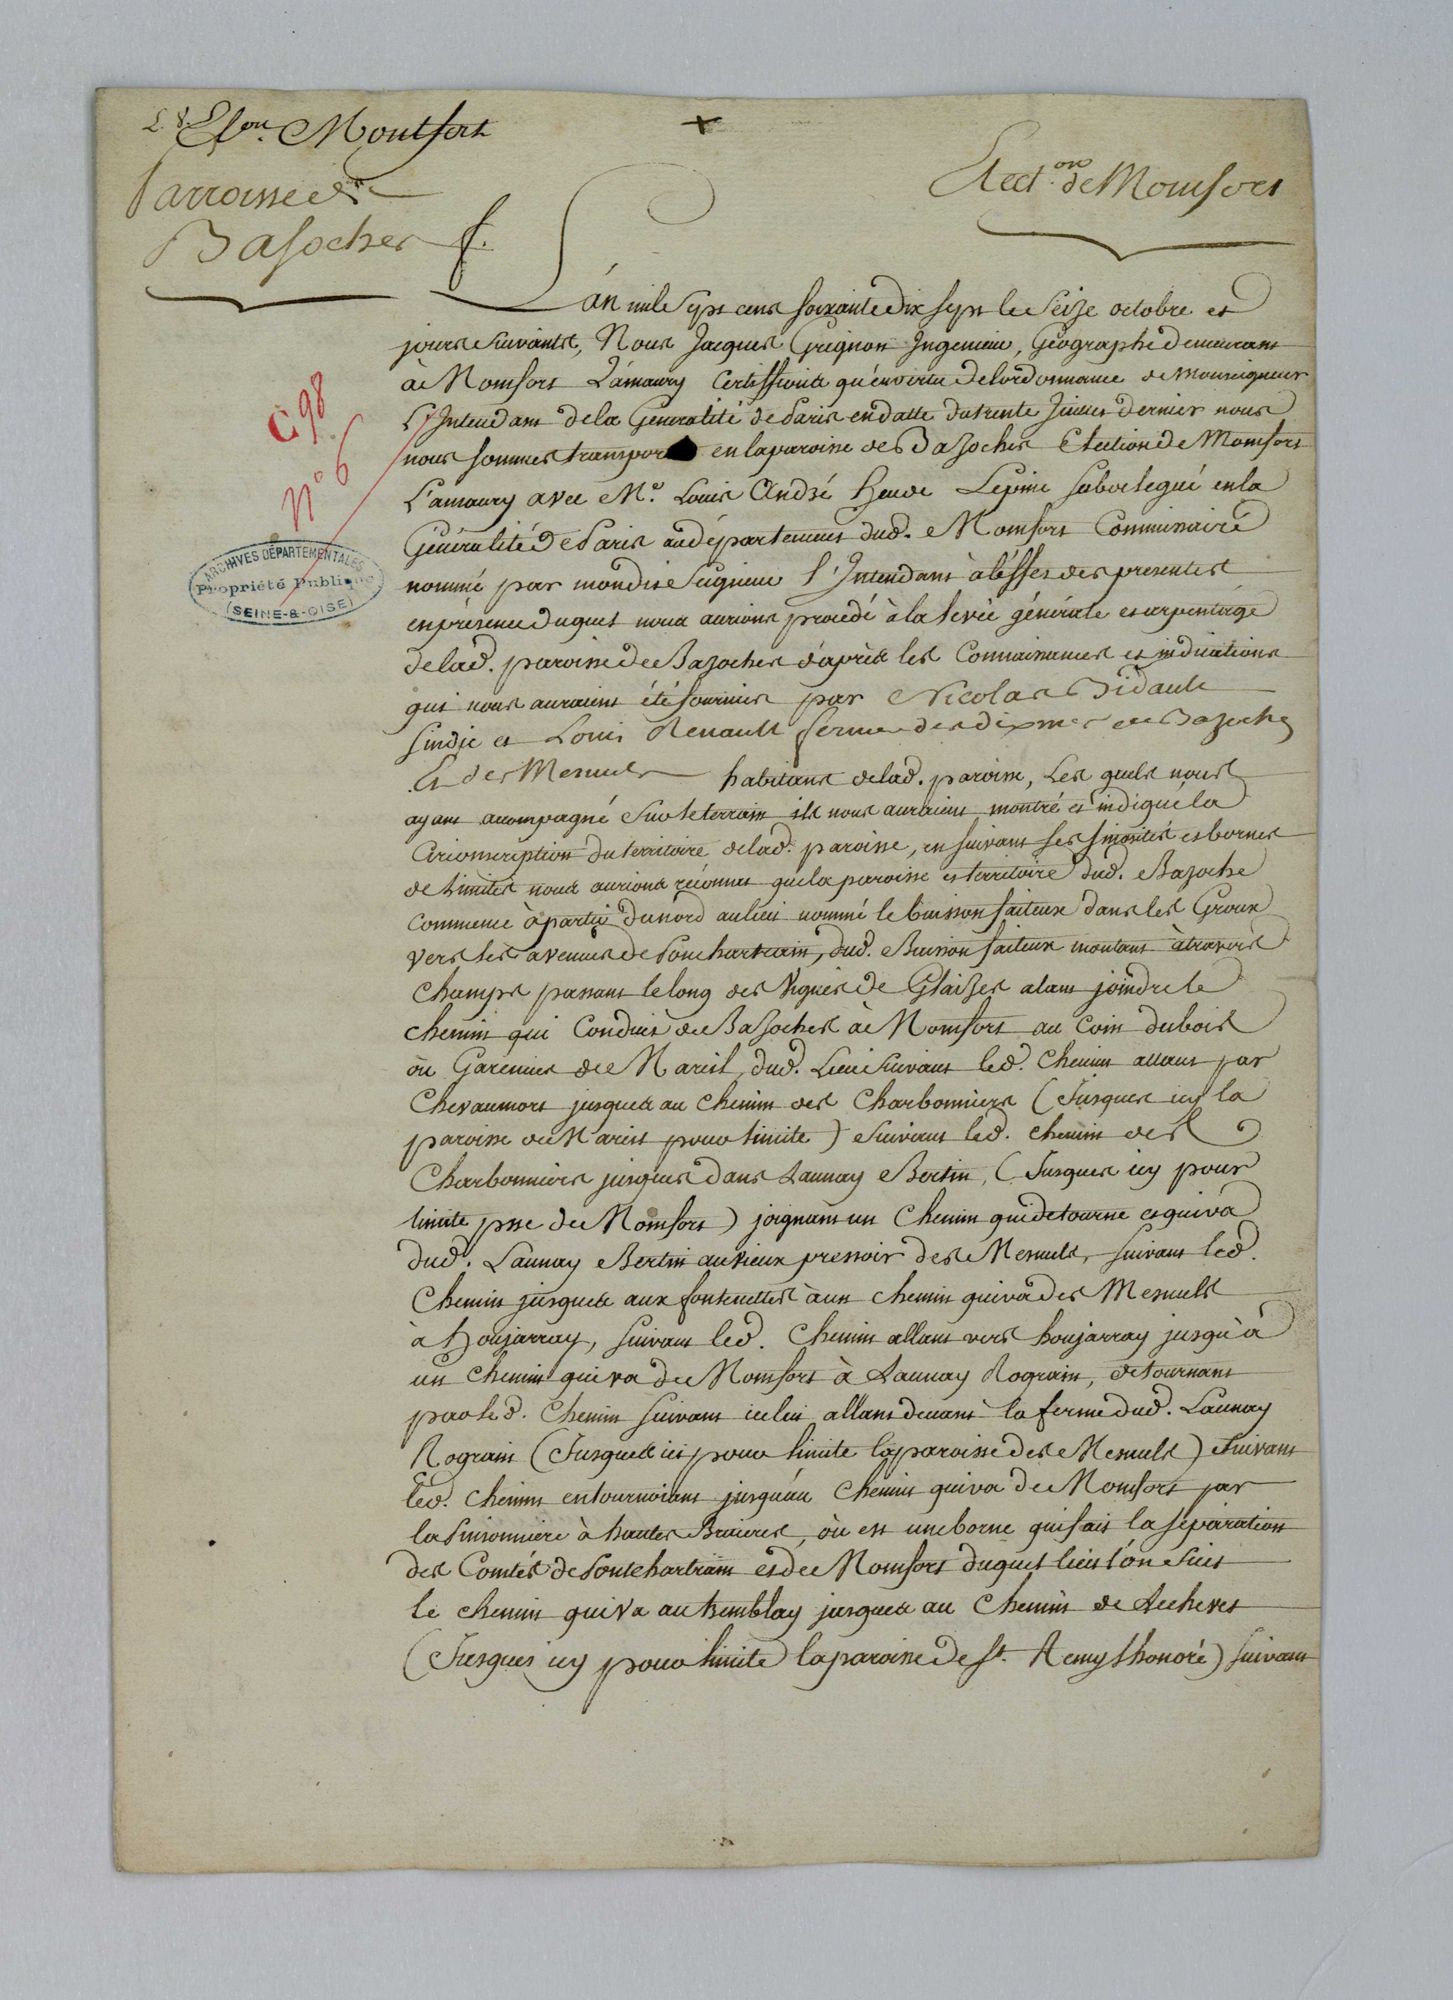 L. 8. El.on Montfort
Parroisse de
Basoches f.
Elect.on de Montfort
C 98
N° 6
ARCHIVES DÉPARTEMENTALES
Propriété Publique
(SEINE-&-OISE)
L'an mile sept cens soixante dix sept le Seize octobre et
jours suivants, Nous Jacques Grignon Ingenieur, Géographe demeurant
à Montfort L'amaury Certiffions qu'en vertu de l'ordonnance de Monseigneur
L'Intendant de la Généralité de Paris en datte du trente Juillet dernier nous
nous sommes transporté en la paroisse de Bazoches Election de Montfort
L'amaury avec M.e Louis André Lepine subdelegué en la
Généralité de Paris au département dud. Montfort Commissaire
nommé par mondit Seigneur l'Intendant à l'éffet des presentes
en présence duquel nous aurions procédé à la levée générale et arpentage
de lad. paroisse de Bazoches d'après les Connaissances et indications
qui nous auraient été fournies par Nicolas Bidault
sindic et Louis Renault fermier des dixmes de Bazoches
Et des Mesnuls habitans de lad. paroisse, Les quels nous
ayant accompagné sur le terrain ils nous auraient montré et indiqué la
Circonscription du territoire de lad. paroisse, en suivant ses sinuosités et bornes
de limites nous aurions réconnu que la paroisse et territoire dud. Bazoche
commence à partir du nord au lieu nommé le buisson faiteux dans les Groux
vers les avenues de Ponchartrain, dud. Buisson faiteux montant à travers
champs passant le long des Vignes de Glaises alant joindre le
chemin qui Conduit de Basoches à Montfort au coin du bois
ou Garennes de Mareil, dud. Lieu suivant led. chemin allant par
Chevaumort jusques au chemin des Charbonniers (Jusques icy la
paroisse de Mareil pour limite) suivant led. chemin des
Charbonniers jusques dans Launay Bertin, (Jusques icy pour
limite psse de Montfort) joignant un Chemin qui detourne et qui va
dud. Launay Bertin au vieux pressoir des Mesnuls, suivant led.
Chemin jusques aux fontenettes à un chemin qui va des Mesnuls
à houjarray, suivant led. Chemin allant vers houjarray jusqu'à
un chemin qui va de Montfort à Launay Rograin, detournant
par led. Chemin suivant icelui allant devant la ferme dud. Launay
Rograin (Jusques ici pour limite la paroisse des Mesnuls) Suivant
led. chemin en tournoiant jusqu'au chemin qui va de Montfort par
la Simonniere à hautes Bruieres, où est une borne qui fait la séparation
des Comtés de Pontchartrain et de Montfort duquel lieu l'on suit
le chemin qui va au tremblay jusques au Chemin de Lechevet
(Jusques icy pour limite la paroisse de St. Remy l'honoré) suivant